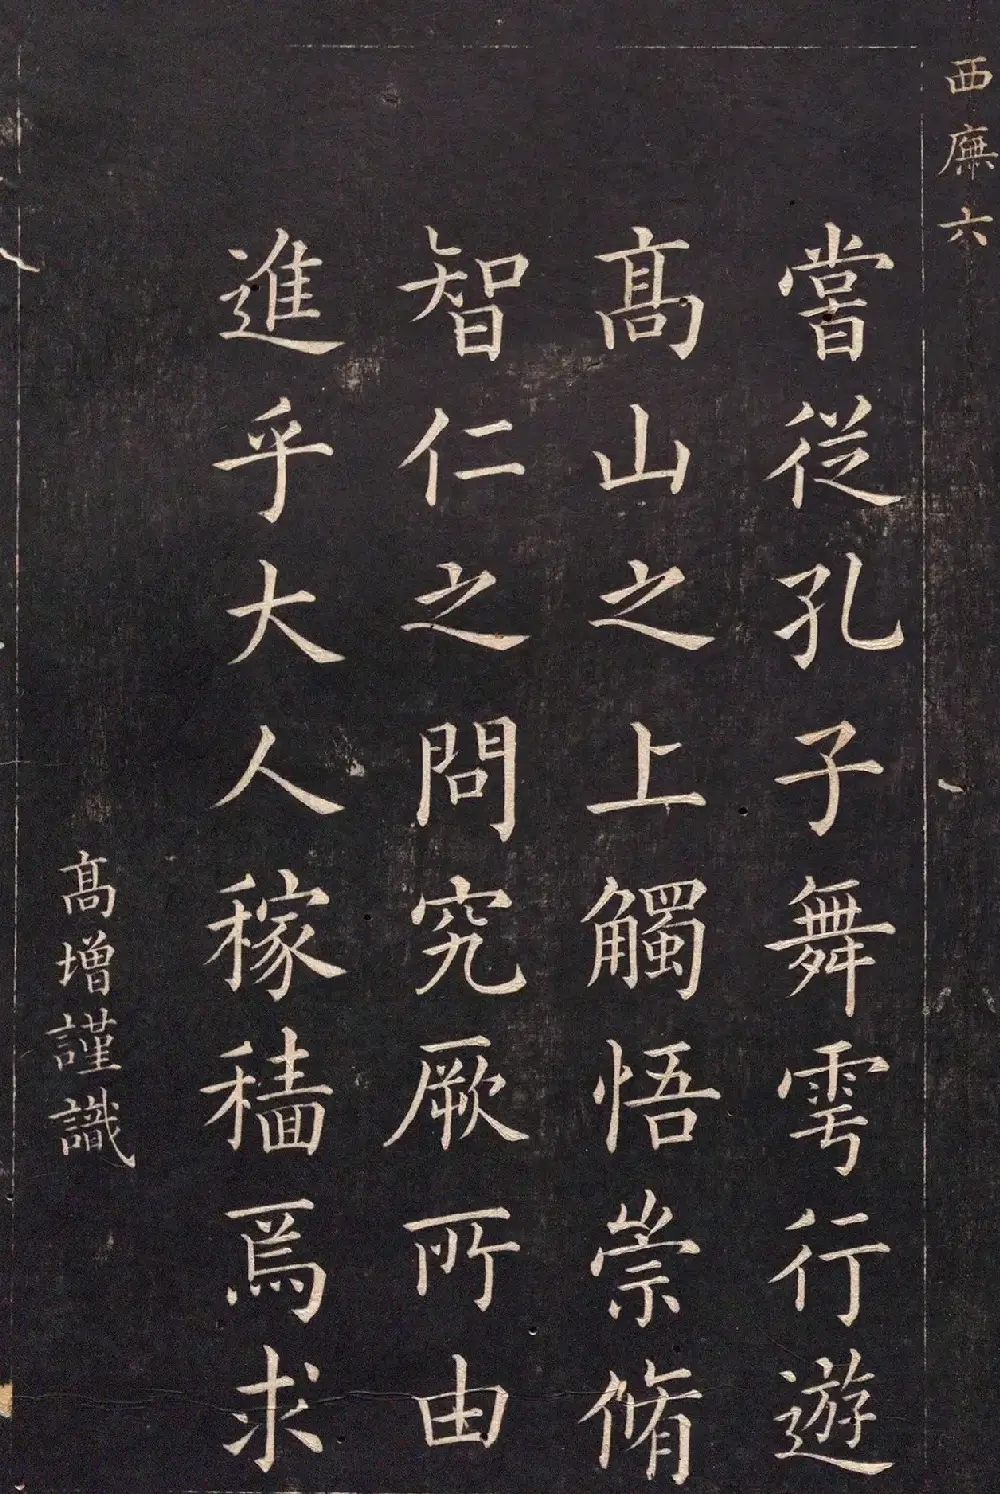 西廡六
嘗從孔子舞雩行遊
髙山之上觸悟崇脩
智仁之問究厥所由
進乎大人稼穡爲求
髙增謹識